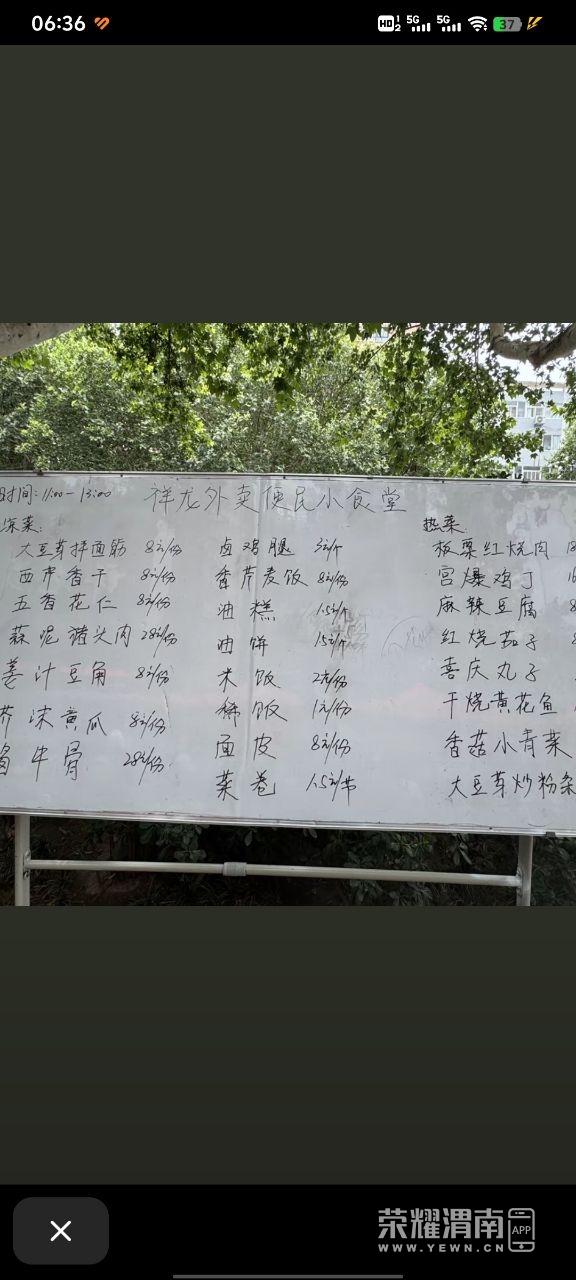 06:36
HD 1 2 5G 5G 37
时间:11:00-13:00 祥龙外卖便民小食堂
凉菜:
大豆芽拌面筋 8元/份
西芹香干 8元/份
五香花仁 8元/份
蒜泥猪头肉 28元/份
姜汁豆角 8元/份
芥末黄瓜 8元/份
卤牛骨 28元/份
卤鸡腿 3元/个
香芹麦饭 8元/份
油糕 1.5元/个
油饼 1.5元/个
米饭 2元/份
稀饭 1元/份
面皮 8元/份
菜卷 1.5元/节
热菜:
板栗红烧肉 18
宫爆鸡丁
麻辣豆腐 8
红烧茄子
喜庆丸子
干烧黄花鱼
香菇小青菜
大豆芽炒粉条
荣耀渭南 APP
WWW.YEWN.CN